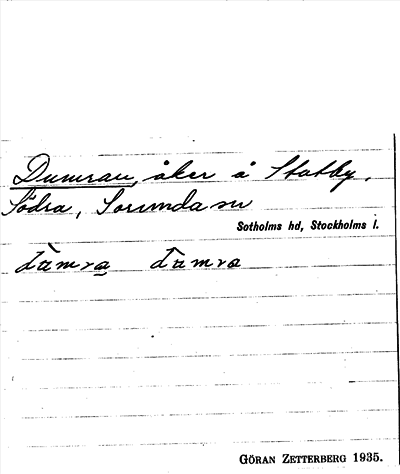 Dumran, åker å Statby,
Södra, Sorunda sn
Sotholms hd, Stockholms l.
GÖRAN ZETTERBERG 1935.